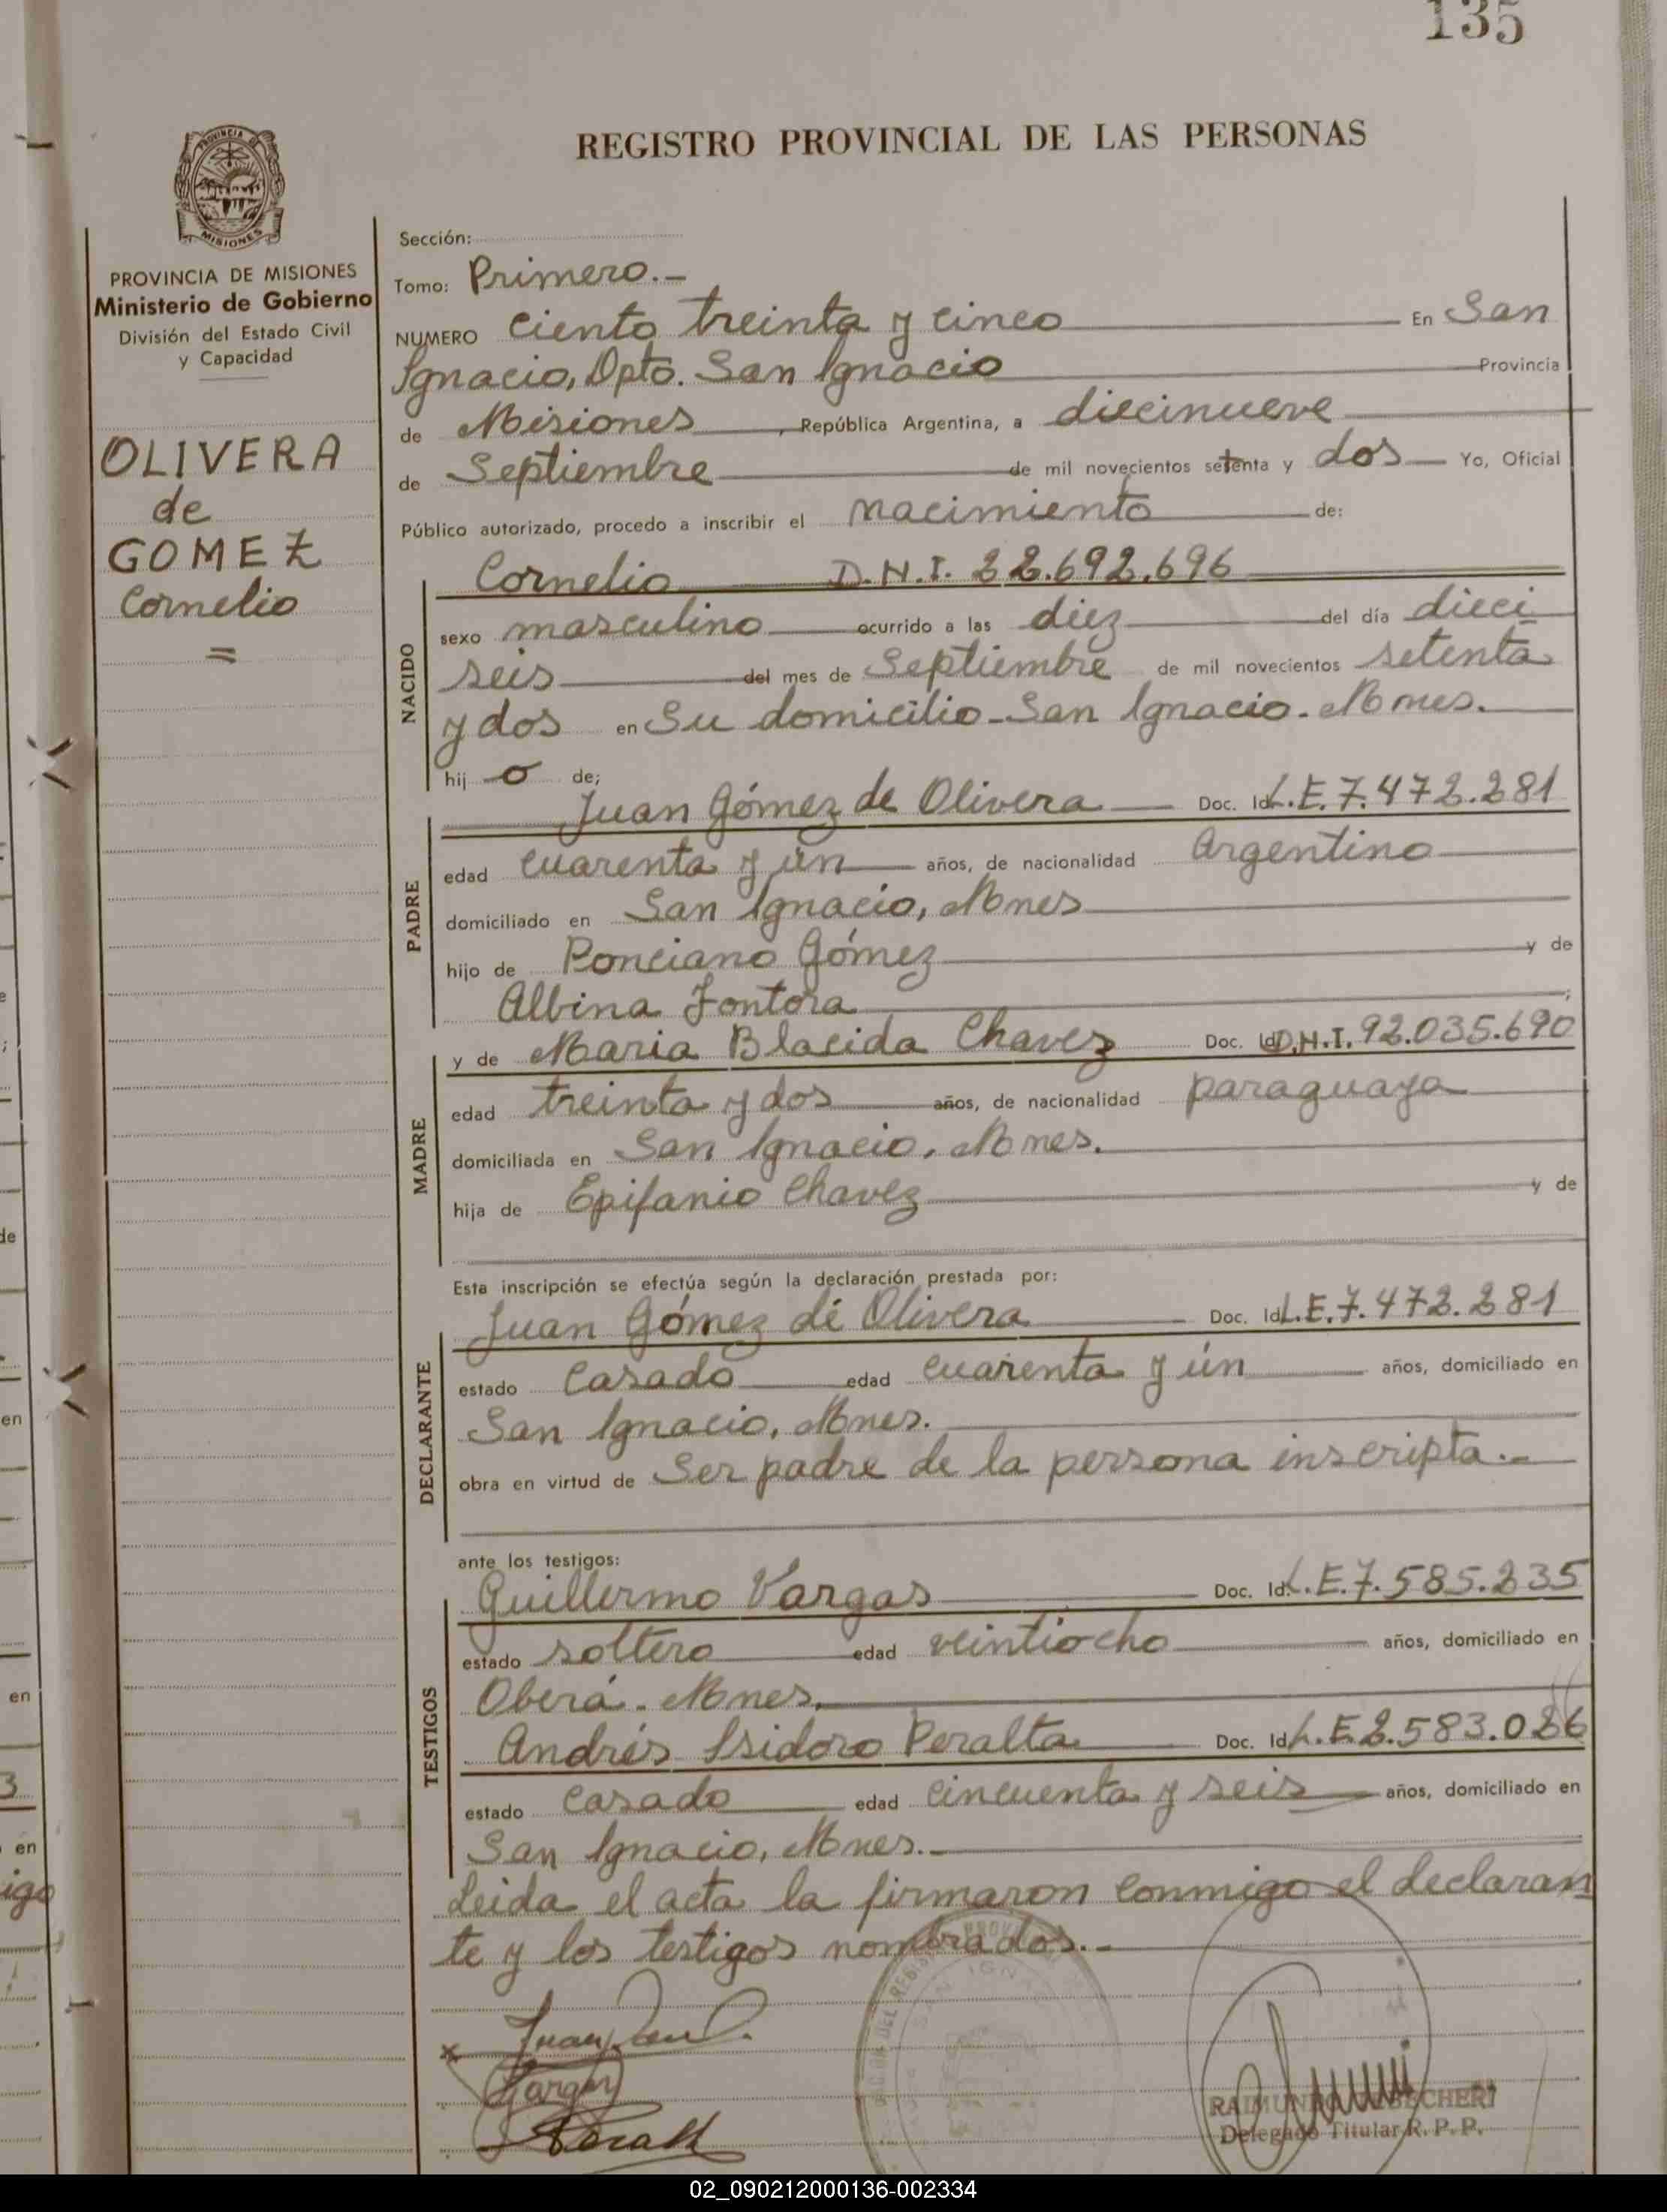 135
REGISTRO PROVINCIAL DE LAS PERSONAS
PROVINCIA
MISIONES
PROVINCIA DE MISIONES
Ministerio de Gobierno
División del Estado Civil
y Capacidad
OLIVERA
de
GOMEZ
Cornelio
=
Sección:
Tomo: Primero.-
NUMERO ciento treinta y cinco En San
Ignacio, Dpto. San Ignacio Provincia
de Misiones, República Argentina, a diecinueve
de Septiembre de mil novecientos setenta y dos Yo, Oficial
Público autorizado, procedo a inscribir el nacimiento de:
NACIDO
Cornelio D.N.I. 22.692.696
sexo masculino ocurrido a las diez del día dieci
seis del mes de Septiembre de mil novecientos setenta
y dos en Su domicilio-San Ignacio. Mnes.
hij o de;
PADRE
Juan Gómez de Olivera Doc. Id. L.E. 7.472.281
edad cuarenta y ún años, de nacionalidad Argentino
domiciliado en San Ignacio, Mnes
hijo de Ponciano Gómez y de
Albina Fontora;
MADRE
y de Maria Blasida Chavez Doc. Id. D.N.I. 92.035.690
edad treinta y dos años, de nacionalidad paraguaya
domiciliada en San Ignacio, Mnes.
hija de Epifanio Chavez y de
Esta inscripción se efectúa según la declaración prestada por:
DECLARANTE
Juan Gómez de Olivera Doc. Id. L.E. 7.472.281
estado Casado edad cuarenta y ún años, domiciliado en
San Ignacio, Mnes.
obra en virtud de Ser padre de la persona inscripta.-
ante los testigos:
TESTIGOS
Guillermo Vargas Doc. Id. L.E. 7.585.235
estado soltero edad veintiocho años, domiciliado en
Oberá. Mnes.
Andrés Isidoro Peralta Doc. Id. L.E. 2.583.026
estado Casado edad cincuenta y seis años, domiciliado en
San Ignacio, Mnes.-
Leida el acta la firmaron conmigo el declaran
te y los testigos nombrados.-
x Juan
Vargas
Delegado Titular R. P. P.
02_090212000136-002334